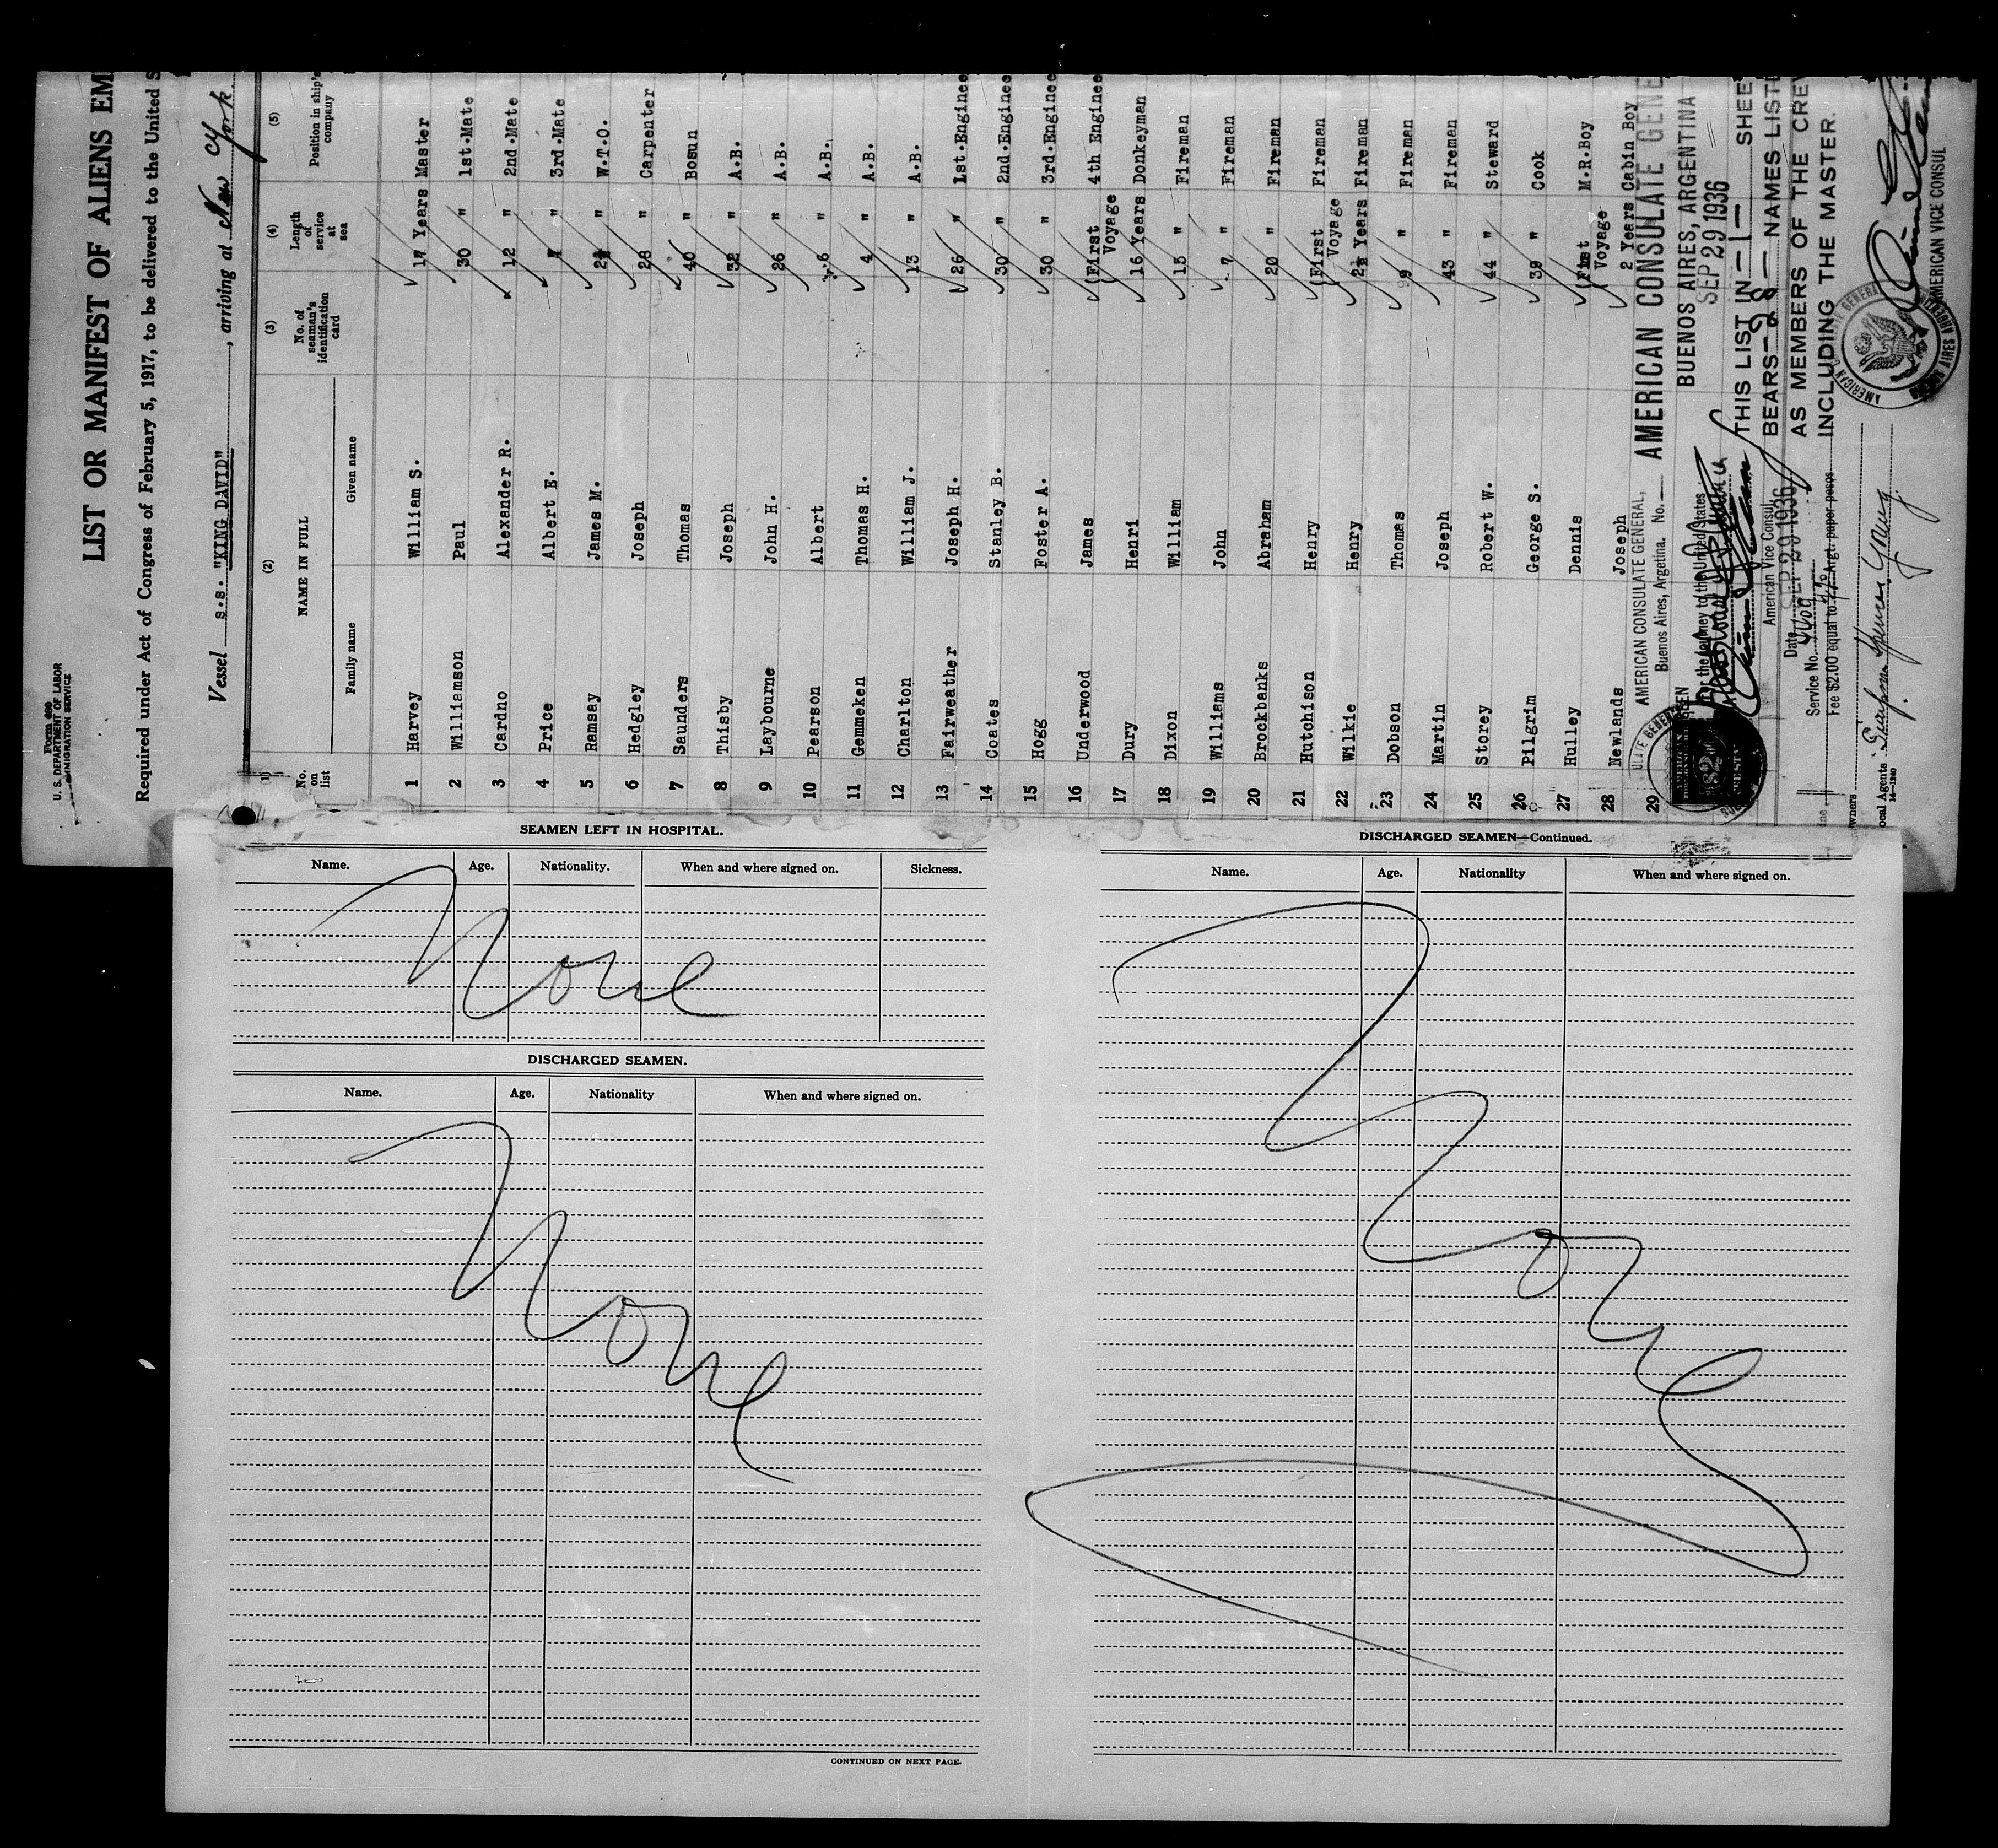 Form 680
U. S. DEPARTMENT OF LABOR
IMMIGRATION SERVICE
LIST OR MANIFEST OF ALIENS EM
Required under Act of Congress of February 5, 1917, to be delivered to the United S
Vessel s.s. "KING DAVID", arriving at New York
(1) (2) (3) (4) (5)
No. on list NAME IN FULL No. of seaman's identification card Length of service at sea Position in ship's company
Family name Given name
1 Harvey William S. 17 Years Master
2 Williamson Paul 30 " 1st.Mate
3 Cardno Alexander R. 12 " 2nd.Mate
4 Price Albert E. " 3rd.Mate
5 Ramsay James M. 2½ " W.T.O.
6 Hedgley Joseph 28 " Carpenter
7 Saunders Thomas 40 " Bosun
8 Thisby Joseph 32 " A.B.
9 Laybourne John H. 26 " A.B.
10 Pearson Albert 6 " A.B.
11 Gemmeken Thomas H. 4 " A.B.
12 Charlton William J. 13 " A.B.
13 Fairweather Joseph H. 26 " 1st.Enginee
14 Coates Stanley B. 30 " 2nd.Enginee
15 Hogg Foster A. 30 " 3rd.Enginee
16 Underwood James (First Voyage 4th Enginee
17 Dury Henri 16 Years Donkeyman
18 Dixon William 15 " Fireman
19 Williams John 7 " Fireman
20 Brockbanks Abraham 20 " Fireman
21 Hutchison Henry (First Voyage Fireman
22 Wilkie Henry 2½ Years Fireman
23 Dobson Thomas 9 " Fireman
24 Martin Joseph 43 " Fireman
25 Storey Robert W. 44 " Steward
26 Pilgrim George S. 39 " Cook
27 Hulley Dennis (First Voyage M.R.Boy
28 Newlands Joseph 2 Years Cabin Boy
29
AMERICAN CONSULATE GENERAL,
Buenos Aires, Argetina. No.
For the journey to the United States
American Vice Consul
Date SEP 29 1936
Service No.
Fee $2.00 equal to Argt. paper pesos
AMERICAN CONSULATE GENE
BUENOS AIRES, ARGENTINA
SEP 29 1936
THIS LIST IN —1— SHEE
BEARS—28— NAMES LISTE
AS MEMBERS OF THE CREW
INCLUDING THE MASTER.
AMERICAN VICE CONSUL
ocal Agents
14—1240
wners
SEAMEN LEFT IN HOSPITAL.
Name. Age. Nationality. When and where signed on. Sickness.
None
DISCHARGED SEAMEN.
Name. Age. Nationality When and where signed on.
None
CONTINUED ON NEXT PAGE.
DISCHARGED SEAMEN—Continued.
Name. Age. Nationality When and where signed on.
None